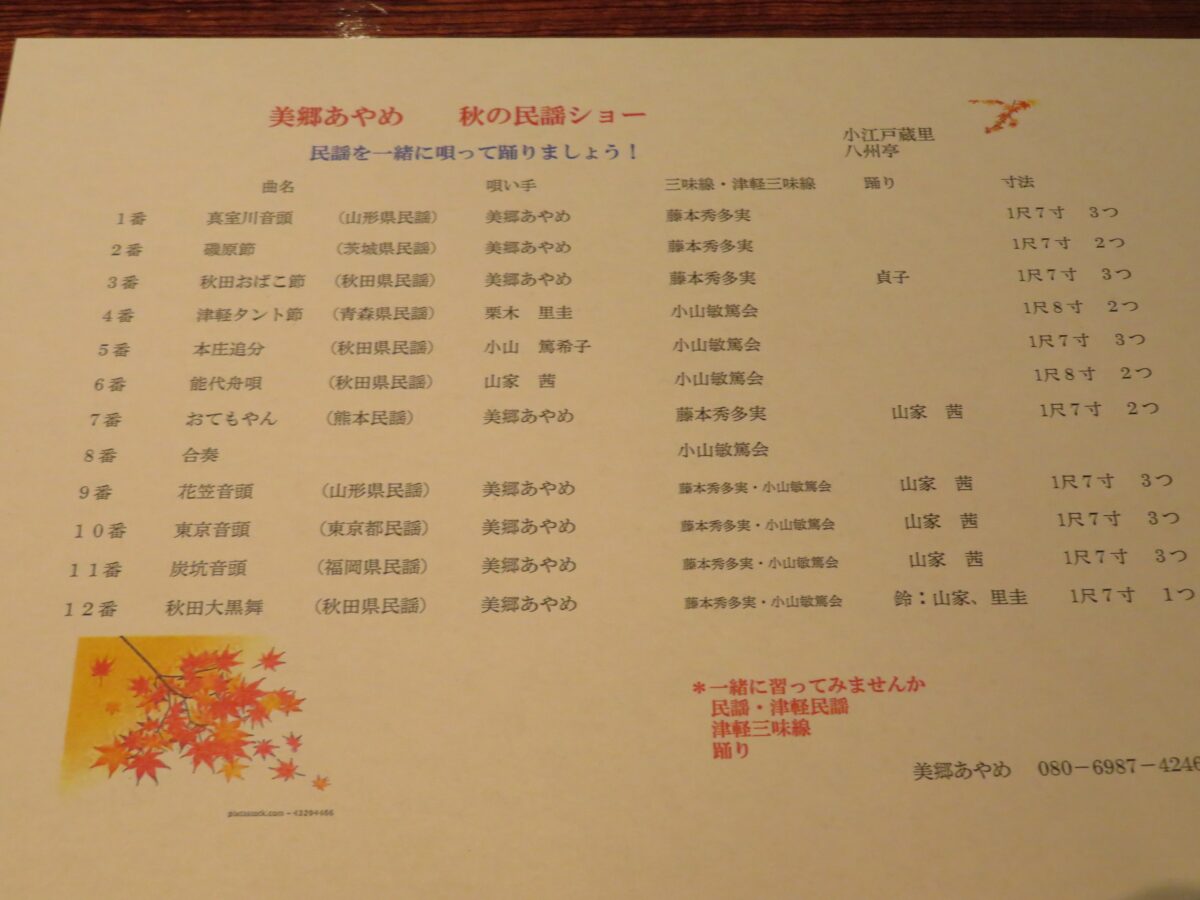 美郷あやめ　　秋の民謡ショー
民謡を一緒に唄って踊りましょう！
小江戸蔵里
八州亭
曲名　唄い手　三味線・津軽三味線　踊り　寸法
１番　真室川音頭　（山形県民謡）　美郷あやめ　藤本秀多実　1尺７寸　３つ
２番　磯原節　（茨城県民謡）　美郷あやめ　藤本秀多実　1尺７寸　２つ
３番　秋田おばこ節　（秋田県民謡）　美郷あやめ　藤本秀多実　貞子　1尺７寸　３つ
４番　津軽タント節　（青森県民謡）　栗木　里圭　小山敏篤会　1尺８寸　２つ
５番　本庄追分　（秋田県民謡）　小山　篤希子　小山敏篤会　1尺７寸　３つ
６番　能代舟唄　（秋田県民謡）　山家　茜　小山敏篤会　1尺８寸　２つ
７番　おてもやん　（熊本民謡）　美郷あやめ　藤本秀多実　山家　茜　1尺７寸　２つ
８番　合奏　小山敏篤会
９番　花笠音頭　（山形県民謡）　美郷あやめ　藤本秀多実・小山敏篤会　山家　茜　1尺７寸　３つ
１０番　東京音頭　（東京都民謡）　美郷あやめ　藤本秀多実・小山敏篤会　山家　茜　1尺７寸　３つ
１１番　炭坑音頭　（福岡県民謡）　美郷あやめ　藤本秀多実・小山敏篤会　山家　茜　1尺７寸　３つ
１２番　秋田大黒舞　（秋田県民謡）　美郷あやめ　藤本秀多実・小山敏篤会　鈴：山家、里圭　1尺７寸　１つ
＊一緒に習ってみませんか
民謡・津軽民謡
津軽三味線
踊り
美郷あやめ　080－6987－4246
pixtastock.com - 43294666